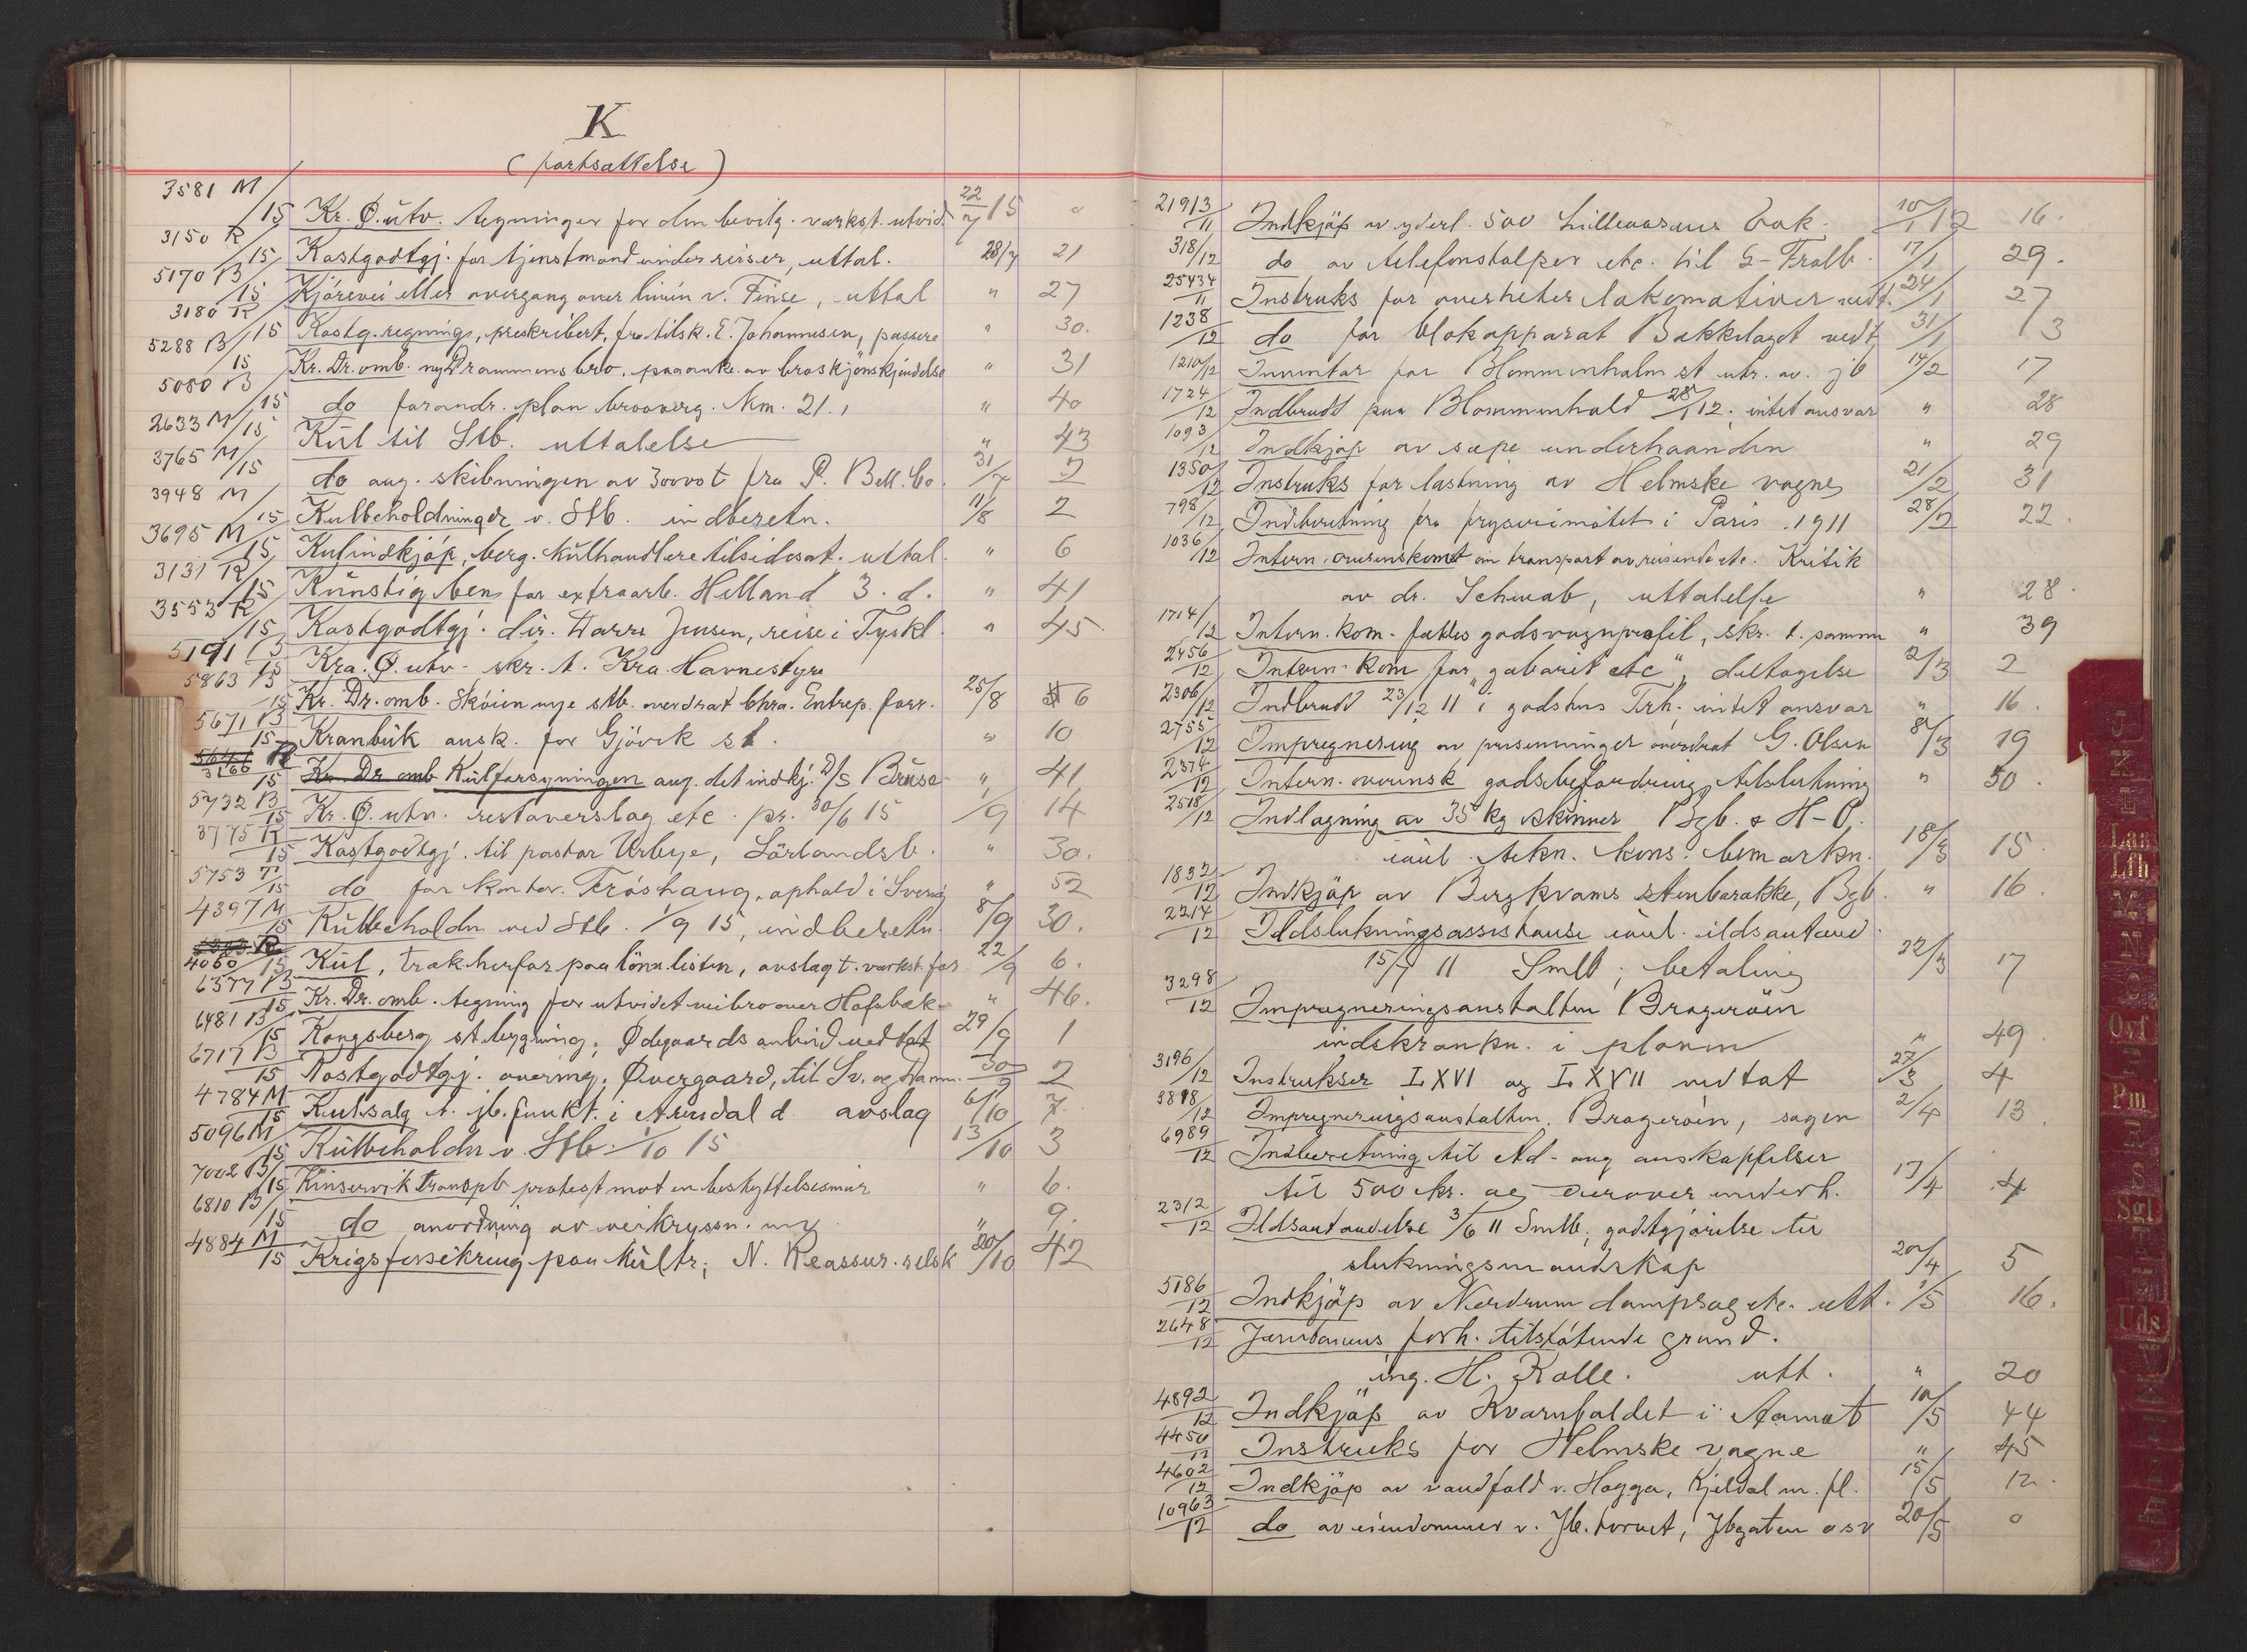 K
(fortsættelse)
3581 M/15 Kr. Ø. utv. tegninger for den bevilg. verkst. utvid. 22/7 15 0
3150 R/15 Kostgodtgj. for tjenstmænd under reiser, uttal. 28/7 21
5170 B/15 Kjørevei eller overgang over linien v. Finse, uttal " 27
3180 R/15 Kostg. regninge, preskribert, fra tilsk. E. Johannesen, passere " 30.
5288 B/15 Kr. Dr. omb. ny Drammens bro, paaanke av broskjønskjendelse " 31
5080 B/15 do forandr. plan brooverg. Km. 21. " 40
2633 M/15 Kul til Stb. uttalelse " 43
3765 M/15 do ang. skibningen av 3000 t fra P. Bell. Co. 31/7 2
3948 M/15 Kulbeholdninger v. Stb. indberetn. 11/8 2
3695 M/15 Kulindkjøp, berg. kulhandlere tilsidesat. uttal. " 6
3131 R/15 Kunstig ben for extraarb. Helland 3. d. " 41
3553 R/15 Kostgodtgj. dir. Harra Jensen, reise i Tyskl. " 45.
5191 B/15 Kra. Ø. utv. skr. t. Kra. Havnestyre
5863 B/15 Kr. Dr. omb. Skøien nye stb. overdrat Chra. Entrep. forr. 25/8 6
5671 B/15 Kranbuk ansk. for Gjøvik st. " 10
3266 R/15 Kr. Dr. omb Kulforsyningen ang. det indkj. D/S Bruse " 41
5732 B/15 Kr. Ø. utv. restoverslag etc. pr. 30/6 15 1/9 14
3775 R/15 Kostgodtgj. til pastor Urbye, Sørlandsb. " 30.
5753 /15 do for kontor. Frøshaug, ophold i Sverig " 52
4397 M/15 Kulbeholdn ved Stb. 1/9 15, indberetn. 8/9 30.
4060/15 Kul, træk herfor paa lønn. listen, avslag t. verkst. for 22/9 6.
6377 B/15 Kr. Dr. omb. tegning for utvidet veibro over Hofsbæk " 46.
6481 B/15 Kongsberg st. bygning, Ødegaards anbud vedtat 29/9 1
6717 B/15 Kostgodtgj. overing. Øvergaard, til Sv. og Danm. 30/9 2
4784 M/15 Kulsalg t. jb. funkt. i Arendal d. avslag 6/10 7.
5096 M/15 Kulbeholdn v. Stb. 1/10 15 13/10 3
7002 B/15 Kinservik transpb protest mot en beskyttelsesmur " 6.
6810 B/15 do anordning av veikryssn. ny " 9.
4884 M/15 Krigsforsikring paa kultr.; N. Reassur. selsk 20/10 42
21913/11 Indkjøp av yderl. 500 Lilleaasens Vak. 10/1 12 16.
318/12 do av telefonstolper etc. til S-Fralb. 17/1 29.
25434/11 Instruks for overheter lokomotiver vedt. 24/1 27
1238/12 do for blokapparat Bakkelaget vedt 31/1 3
1210/12 Inventar for Blommenholm st utr. av. jb 14/2 17
1724/12 Indbrudd paa Blommenhold 28/1 12; intet ansvar " 28
1093/12 Indkjøp av sæpe underhaanden " 29
1350/12 Instruks for lastning av Helmske vogne 21/2 31
798/12 Indberetning fra frysveimøtet i Paris 1911 28/2 22.
1036/12 Intern. overenskomst om transport av reisende etc. Kritik
av dr. Schwab, uttalelse " 28.
1714/12 Intern. kom. fælles godsvognprofil, skr. t. samme " 39
2456/12 Intern. kom for "gabarit etc", deltagelse 2/3 2
2306/12 Indbrudd 23/12 11 i godshus Trh. intet ansvar " 16.
2755/12 Impregnering av presenninger overdrat G. Olsen 8/3 19
2374/12 Intern. overensk godsbefordring, tilslutning " 50.
2518/12 Indlægning av 35 kg skinner Bgb. & H-O.
iaul. tekn. kons. bemærkn. 18/3 15.
1832/12 Indkjøp av Bergkvams stenbarakke, Bgb. " 16.
2214/12 Ildslukningsassistanse iaul. ildsantænd.
15/7 11 Smlb; betaling 22/3 17
3298/12 Impregneringsanstalten Bragerøen
indskrænkn. i planen " 49
3196/12 Instrukser LXVI og LXVII vedtat 27/3 4
3818/12 Impregneringsanstalten Bragerøen, sagen 2/4 13.
6989/12 Indberetning til Ad- ang anskaffelser
til 500 kr. og derover underh. 17/4 4
2312/12 Ildsantændelse 3/6 11 Smlb, godtgjørelse ter
slukningsmandskap 20/4 5
5186/12 Indkjøp av Nerdrum dampsag etc. utt. 1/5 16.
2648/12 Jernbanens forh. tilstøtende grund.
ing. H. Kolle. utt. " 20
4892/12 Indkjøp av Kvernfaldet i Aamot 10/5 44
4450/12 Instruks for Helmske vogne " 45
4602/12 Indkjøp av vandfald v. Hogga, Kjeldal m. fl. 15/5 12.
10963/12 do av eiendommer v. Jb. torvet, Jbgaten osv 20/5 0
J
K
Laa
Lfh
M
N
O
Ovf
P
Pm
R
S
Sgl
T
Uds